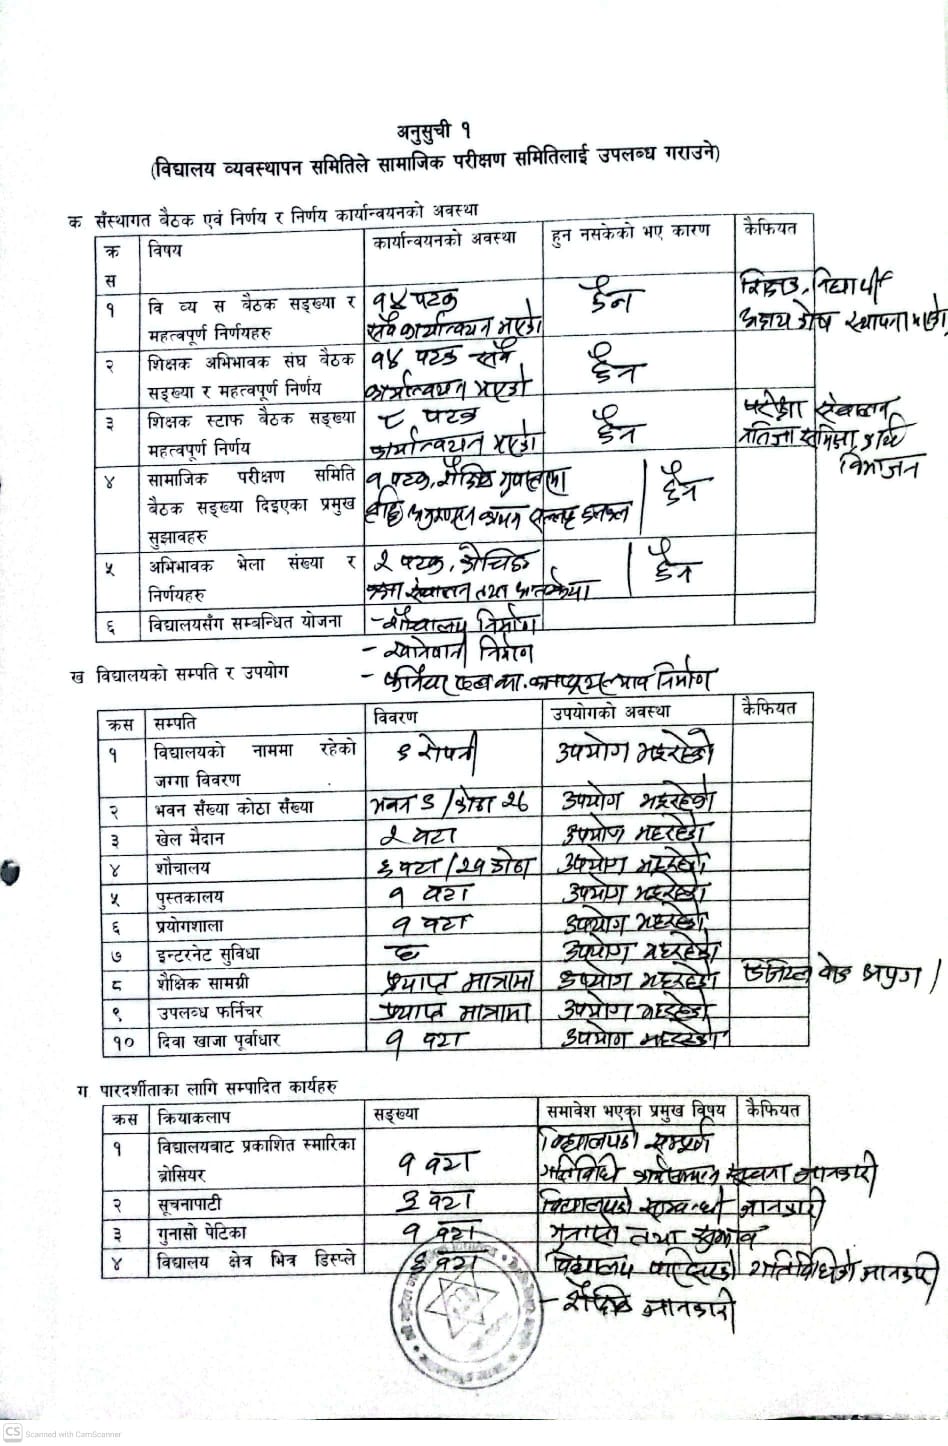 अनुसुची १
(विद्यालय व्यवस्थापन समितिले सामाजिक परीक्षण समितिलाई उपलब्ध गराउने)
क सँस्थागत बैठक एवं निर्णय र निर्णय कार्यान्वयनको अवस्था
क्र स विषय कार्यान्वयनको अवस्था हुन नसकेको भए कारण कैफियत
१ वि व्य स बैठक सङ्ख्या र १४ पटक छैन शिक्षक, विद्यार्थी
महत्वपूर्ण निर्णयहरु सबै कार्यान्वयन भएको अक्षय कोष स्थापना भएको
२ शिक्षक अभिभावक संघ बैठक १४ पटक सबै छैन
सङ्ख्या र महत्वपूर्ण निर्णय कार्यान्वयन भएको
३ शिक्षक स्टाफ बैठक सङ्ख्या ८ पटक छैन परीक्षा संचालन
महत्वपूर्ण निर्णय कार्यान्वयन भएको नतिजा समिक्षा, कार्य
विभाजन
४ सामाजिक परीक्षण समिति १ पटक, शैक्षिक गुणस्तरमा छैन
बैठक सङ्ख्या दिइएका प्रमुख
सुझावहरु
५ अभिभावक भेला संख्या र २ पटक, कोचिङ छैन
निर्णयहरु कक्षा संचालन तथा
६ विद्यालयसँग सम्बन्धित योजना - शौचालय निर्माण
- खानेपानी निर्माण
ख विद्यालयको सम्पति र उपयोग
- फर्निचर निर्माण
क्रस सम्पति विवरण उपयोगको अवस्था कैफियत
१ विद्यालयको नाममा रहेको ६ रोपनी उपयोग भइरहेको
जग्गा विवरण
२ भवन सँख्या कोठा सँख्या भवन ६ /कोठा २६ उपयोग भइरहेको
३ खेल मैदान २ वटा उपयोग भइरहेको
४ शौचालय ६ वटा /२१ कोठा उपयोग भइरहेको
५ पुस्तकालय १ वटा उपयोग भइरहेको
६ प्रयोगशाला १ वटा उपयोग भइरहेको
७ इन्टरनेट सुविधा छ उपयोग भइरहेको
८ शैक्षिक सामग्री प्रयाप्त मात्रामा उपयोग भइरहेको डिजिटल बोर्ड अपुग ।
९ उपलब्ध फर्निचर प्रयाप्त मात्रामा उपयोग भइरहेको
१० दिवा खाजा पूर्वाधार १ वटा उपयोग भइरहेको
ग पारदर्शीताका लागि सम्पादित कार्यहरु
क्रस क्रियाकलाप सङ्ख्या समावेश भएका प्रमुख विषय कैफियत
१ विद्यालयबाट प्रकाशित स्मारिका विद्यालयको सम्पूर्ण
ब्रोसियर १ वटा गतिविधि सूचना जानकारी
२ सूचनापाटी ३ वटा विद्यालयको सम्बन्धी जानकारी
३ गुनासो पेटिका १ वटा गुनासो तथा सुझाव
४ विद्यालय क्षेत्र भित्र डिस्प्ले ६ वटा विद्यालय गतिविधिको जानकारी
- शैक्षिक जानकारी
CS Scanned with CamScanner